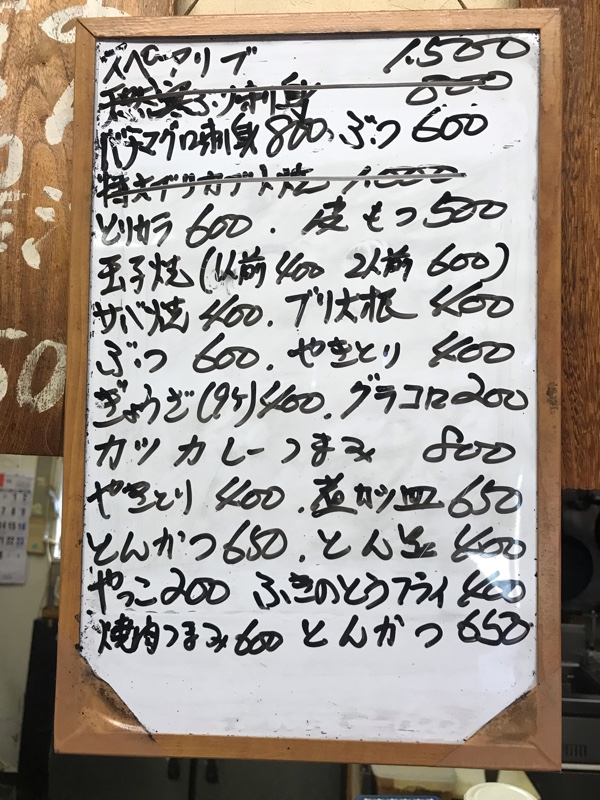 スペアリブ 1,500
天然真ぶり刺身 800
バチマグロ刺身 800、ぶつ 600
特大ブリカブト焼 1,000
とりカラ 600. 皮もつ 500
玉子焼 (1人前 400 2人前 600)
サバ焼 400. ブリ大根 400
ぶつ 600. やきとり 400
ぎょうざ(9ケ)400. グラコロ 200
カツカレーつまみ 800
やきとり 400. 並カツ皿 650
とんかつ 650. とん 400
やっこ 200 ふきのとうフライ 400
焼肉つまみ 600 とんかつ 650
50